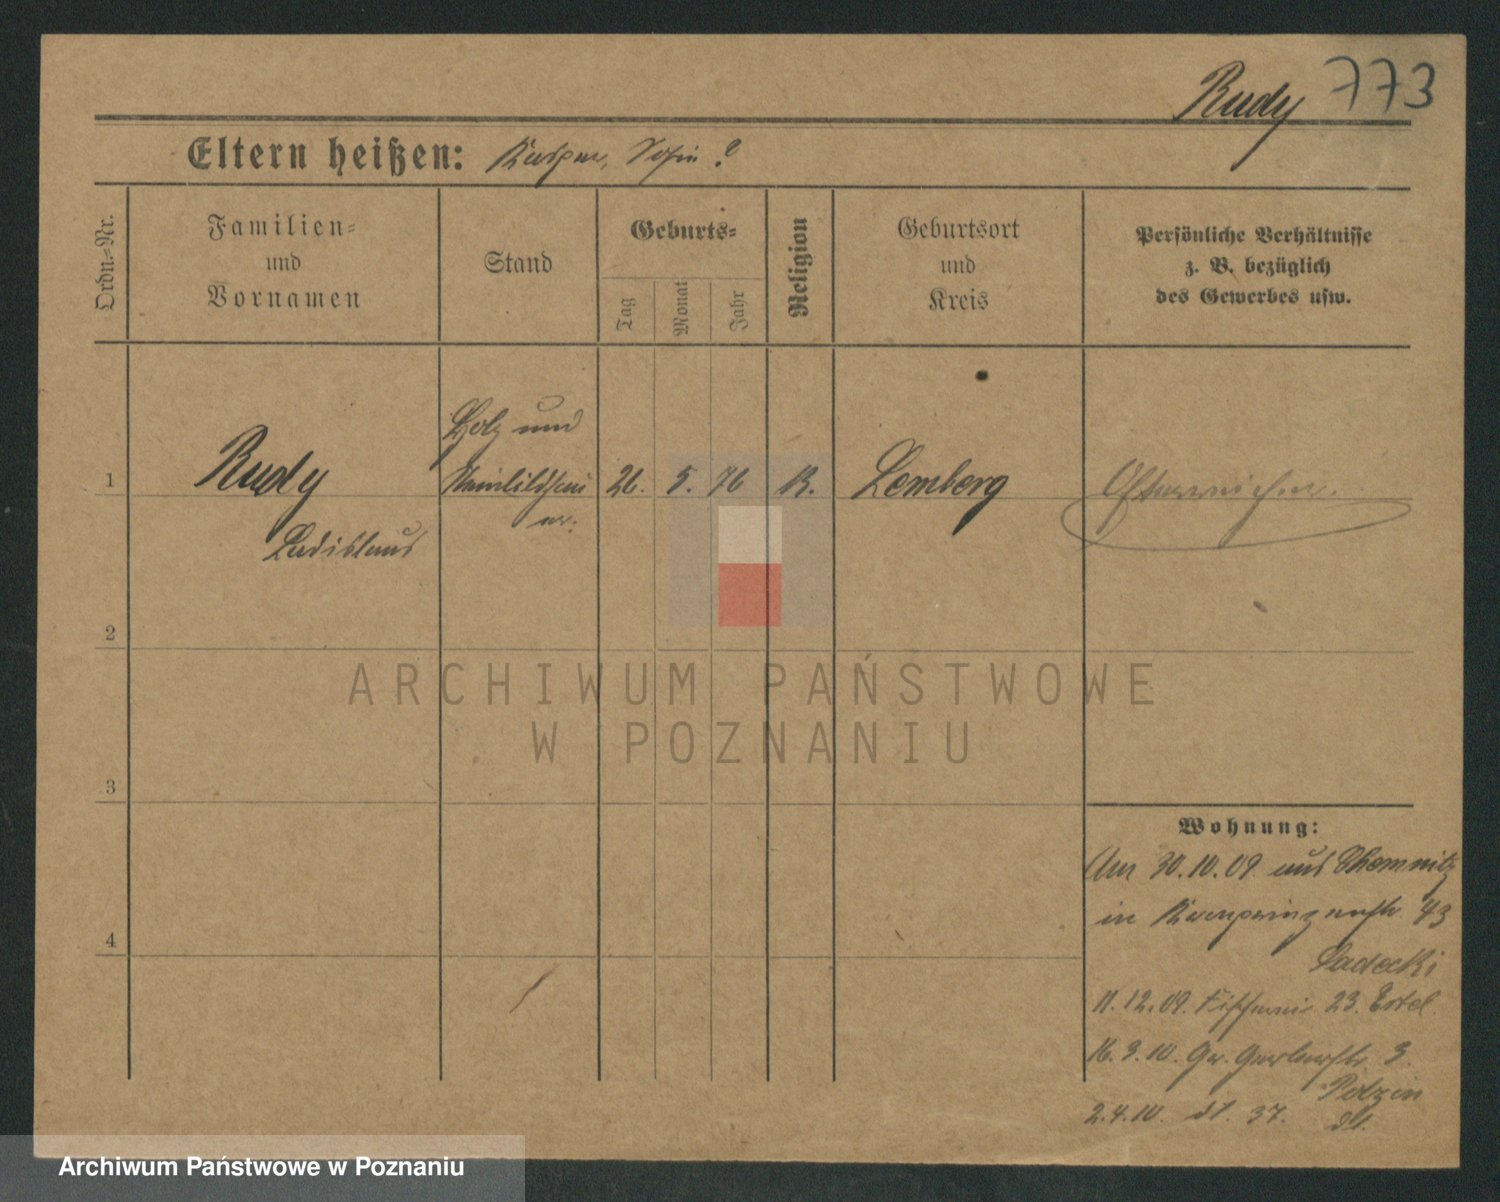 Rudy 773
Eltern heißen: Kasper, Sofie ?
Ordn.=Nr.
Familien=
und
Vornamen
Stand
Geburts=
Tag
Monat
Jahr
Religion
Geburtsort
und
Kreis
Persönliche Verhältnisse
z. B. bezüglich
des Gewerbes usw.
Holz und
1 Rudy Steinbildhau 26. 5. 76 K. Lemberg Österreicher.
er.
Ladislaus
2
3
4
ARCHIWUM PAŃSTWOWE
W POZNANIU
Wohnung:
Am 30.10.09 aus Chemnitz
in Kronprinzenstr. 43
Ladecki
11.12.09. Fischerei 23. Ertel
16.3.10. Gr. Gerberstr. 3.
2.4.10. dt. 37. dt.
Archiwum Państwowe w Poznaniu